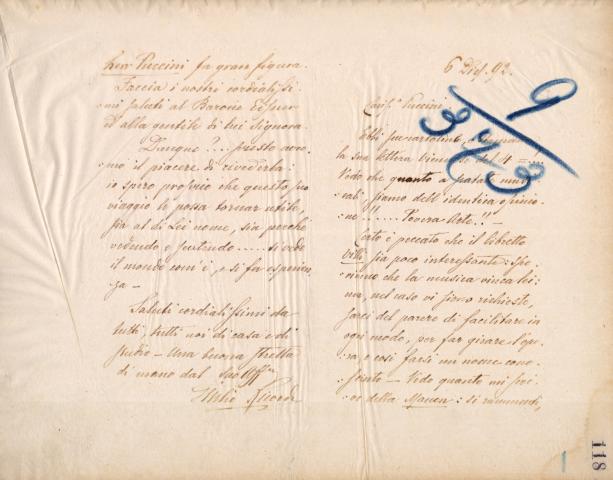 6 Dic. 92.
Cariss.º Puccini
Ebbi sua cartolina,
la sua lettera Viennese del 4 = ....
Vedo che quanto a
siamo dell'identica opinio-
ne !! ..... Povera Arte !! —
Certo è peccato che il libretto
Villi sia poco interessante: spe-
riamo che la musica vinca: 
ma, nel caso vi siano richieste,
sarei del parere di facilitare in
ogni modo, per far girare l'ope-
ra e così farsi un nome cono-
sciuto — Vedo quanto mi scri-
ve della Manon: si rammenti,
9
373
118
1
herr Puccini fa gran figura.
Faccia i nostri cordialissi-
mi saluti al Barone
ed alla gentile di lui Signora.
Dunque? ... presto avre-
mo il piacere di rivederla:
io spero proprio che questo suo
viaggio le possa tornar utile,
sia al di Lei nome, sia perchè
vedendo e sentendo ..... si vede
il mondo com'è, e si fa esperien-
za —
Saluti cordialissimi da
tutti, tutti noi di casa e di
studio — Una buona stretta
di mano dal Suo aff.mo
Giulio Ricordi